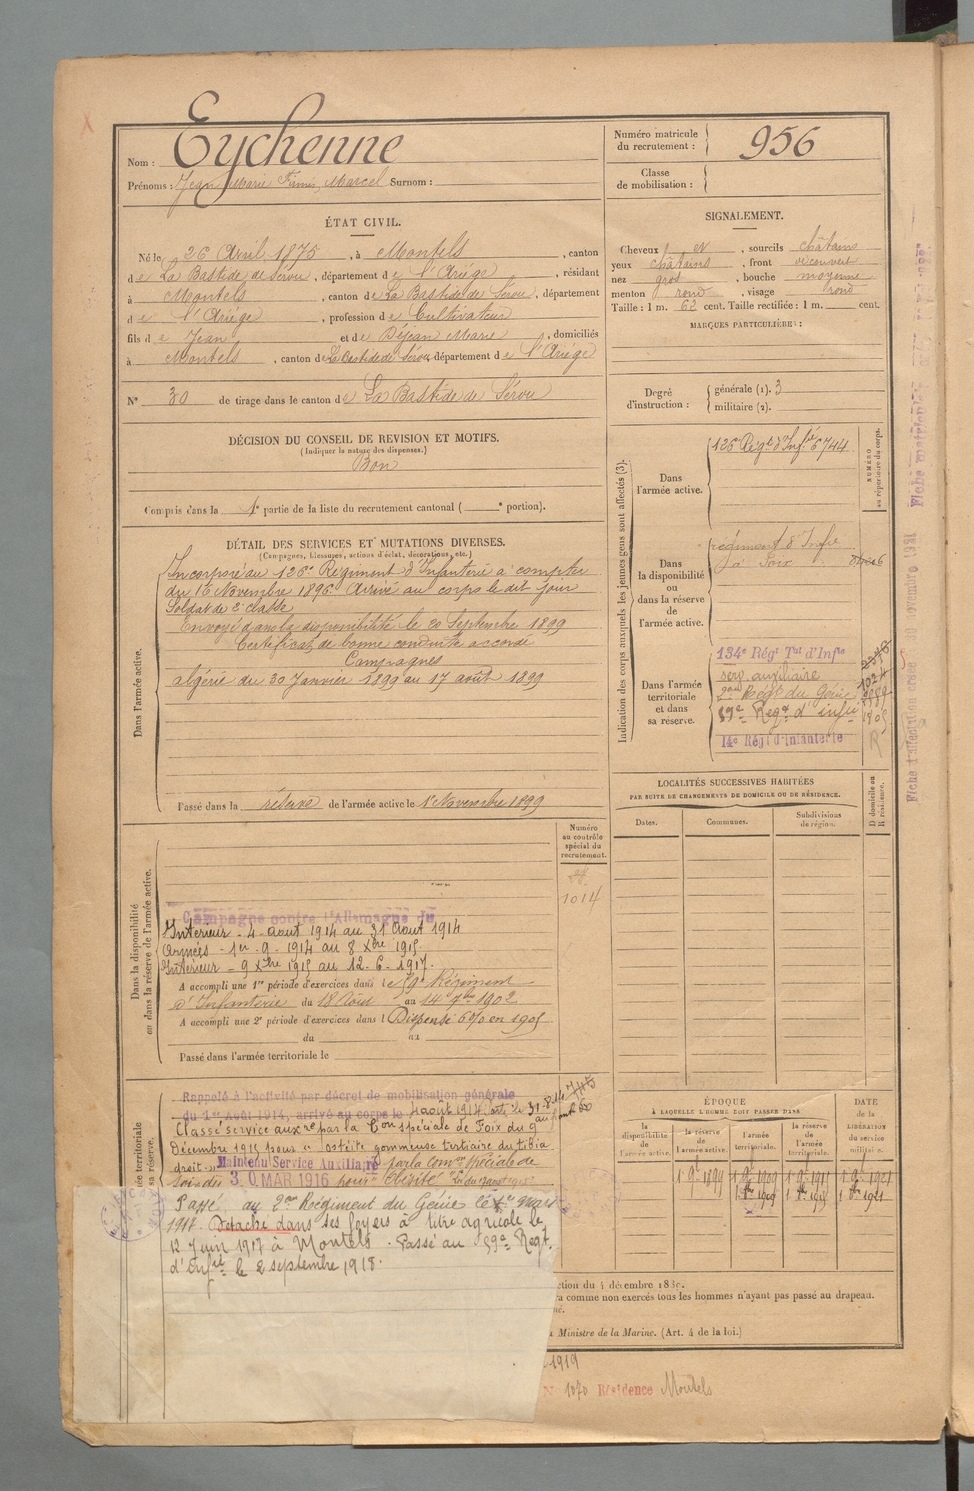 Nom : Eychenne
Prénoms : Jean Marie Firmin Marcel Surnom :
Numéro matricule du recrutement : 956
Classe de mobilisation :
ÉTAT CIVIL.
Né le 26 Avril 1875, à Montels, canton
de La Bastide de Sérou, département de l'Ariége, résidant
à Montels, canton de La Bastide de Sérou, département
de l'Ariége, profession de Cultivateur
fils de Jean et de Déjean Marie, domiciliés
à Montels, canton de La Bastide de Sérou, département de l'Ariége
N° 30 de tirage dans le canton de La Bastide de Sérou
SIGNALEMENT.
Cheveux et, sourcils châtains
yeux châtains, front découvert
nez gros, bouche moyenne
menton rond, visage rond
Taille : 1 m. 62 cent. Taille rectifiée : 1 m. cent.
MARQUES PARTICULIÈRES :
Degré d'instruction : générale (1). 3
militaire (2).
DÉCISION DU CONSEIL DE REVISION ET MOTIFS.
(Indiquer la nature des dispenses.)
Bon
Compris dans la 1e partie de la liste du recrutement cantonal ( e portion).
DÉTAIL DES SERVICES ET MUTATIONS DIVERSES.
(Campagnes, blessures, actions d'éclat, décorations, etc.)
Dans l'armée active.
Incorporé au 126e Régiment d'Infanterie à compter
du 16 Novembre 1896. Arrivé au corps le dit jour
Soldat de 2e classe
Envoyé dans la disponibilité le 20 Septembre 1899
Certificat de bonne conduite accordé
Campagnes
algérie du 30 Janvier 1899 au 17 août 1899
Passé dans la réserve de l'armée active le 1er Novembre 1899
Indication des corps auxquels les jeunes gens sont affectés (3).
NUMÉRO au répertoire du corps.
Dans l'armée active.
126e Régt d'Infie 6744
Dans la disponibilité ou dans la réserve de l'armée active.
régiment d'Infie
à Foix
Dans l'armée territoriale et dans sa réserve.
134e Régt Tal d'Infie
serv. auxiliaire
2me Régt du Génie
59e Regt d'infie
14e Régt d'Infanterie
R
LOCALITÉS SUCCESSIVES HABITÉES
PAR SUITE DE CHANGEMENTS DE DOMICILE OU DE RÉSIDENCE.
Dates. Communes. Subdivisions de région. D domicile ou R résidence.
Numéro au contrôle spécial du recrutement.
1014
Dans la disponibilité ou dans la réserve de l'armée active.
Campagne contre l'Allemagne du
Intérieur - 4 - aout 1914 au 31 Aout 1914
Armées - 1er - 9 - 1914 au 8 Xbre 1915.
Intérieur - 9 Xbre 1915 au 12 - 6 - 1917.
A accompli une 1re période d'exercices dans le 59e Régiment
d'Infanterie du 18 Aout au 14 7bre 1902
A accompli une 2e période d'exercices dans l Dispensé 6% en 1905
du au
Passé dans l'armée territoriale le
Rappelé à l'activité par décret de mobilisation générale
du 1er Août 1914, arrivé au corps le 4 août 1914
Classé service auxre par la Con spéciale de Foix du 9
Décembre 1915 pour « ostéite gommeuse tertiaire du tibia
droit. » Maintenu Service Auxiliaire par la Comon spéciale de
30 MAR 1916 pour "Obésité"
Passé au 2me Régiment du Génie le
1917. Détaché dans ses foyers à titre agricole le
12 Juin 1917 à Montels. Passé au 59e Regt
d'Infie le 2 septembre 1918.
ÉPOQUE
À LAQUELLE L'HOMME DOIT PASSER DANS
la disponibilité de l'armée active.
la réserve de l'armée active.
l'armée territoriale.
la réserve de l'armée territoriale.
DATE de la LIBÉRATION du service militaire.
ction du 4 décembre 1889.
ra comme non exercés tous les hommes n'ayant pas passé au drapeau.
Ministre de la Marine. (Art. 4 de la loi.)
1919
N° 1070 Résidence Montels